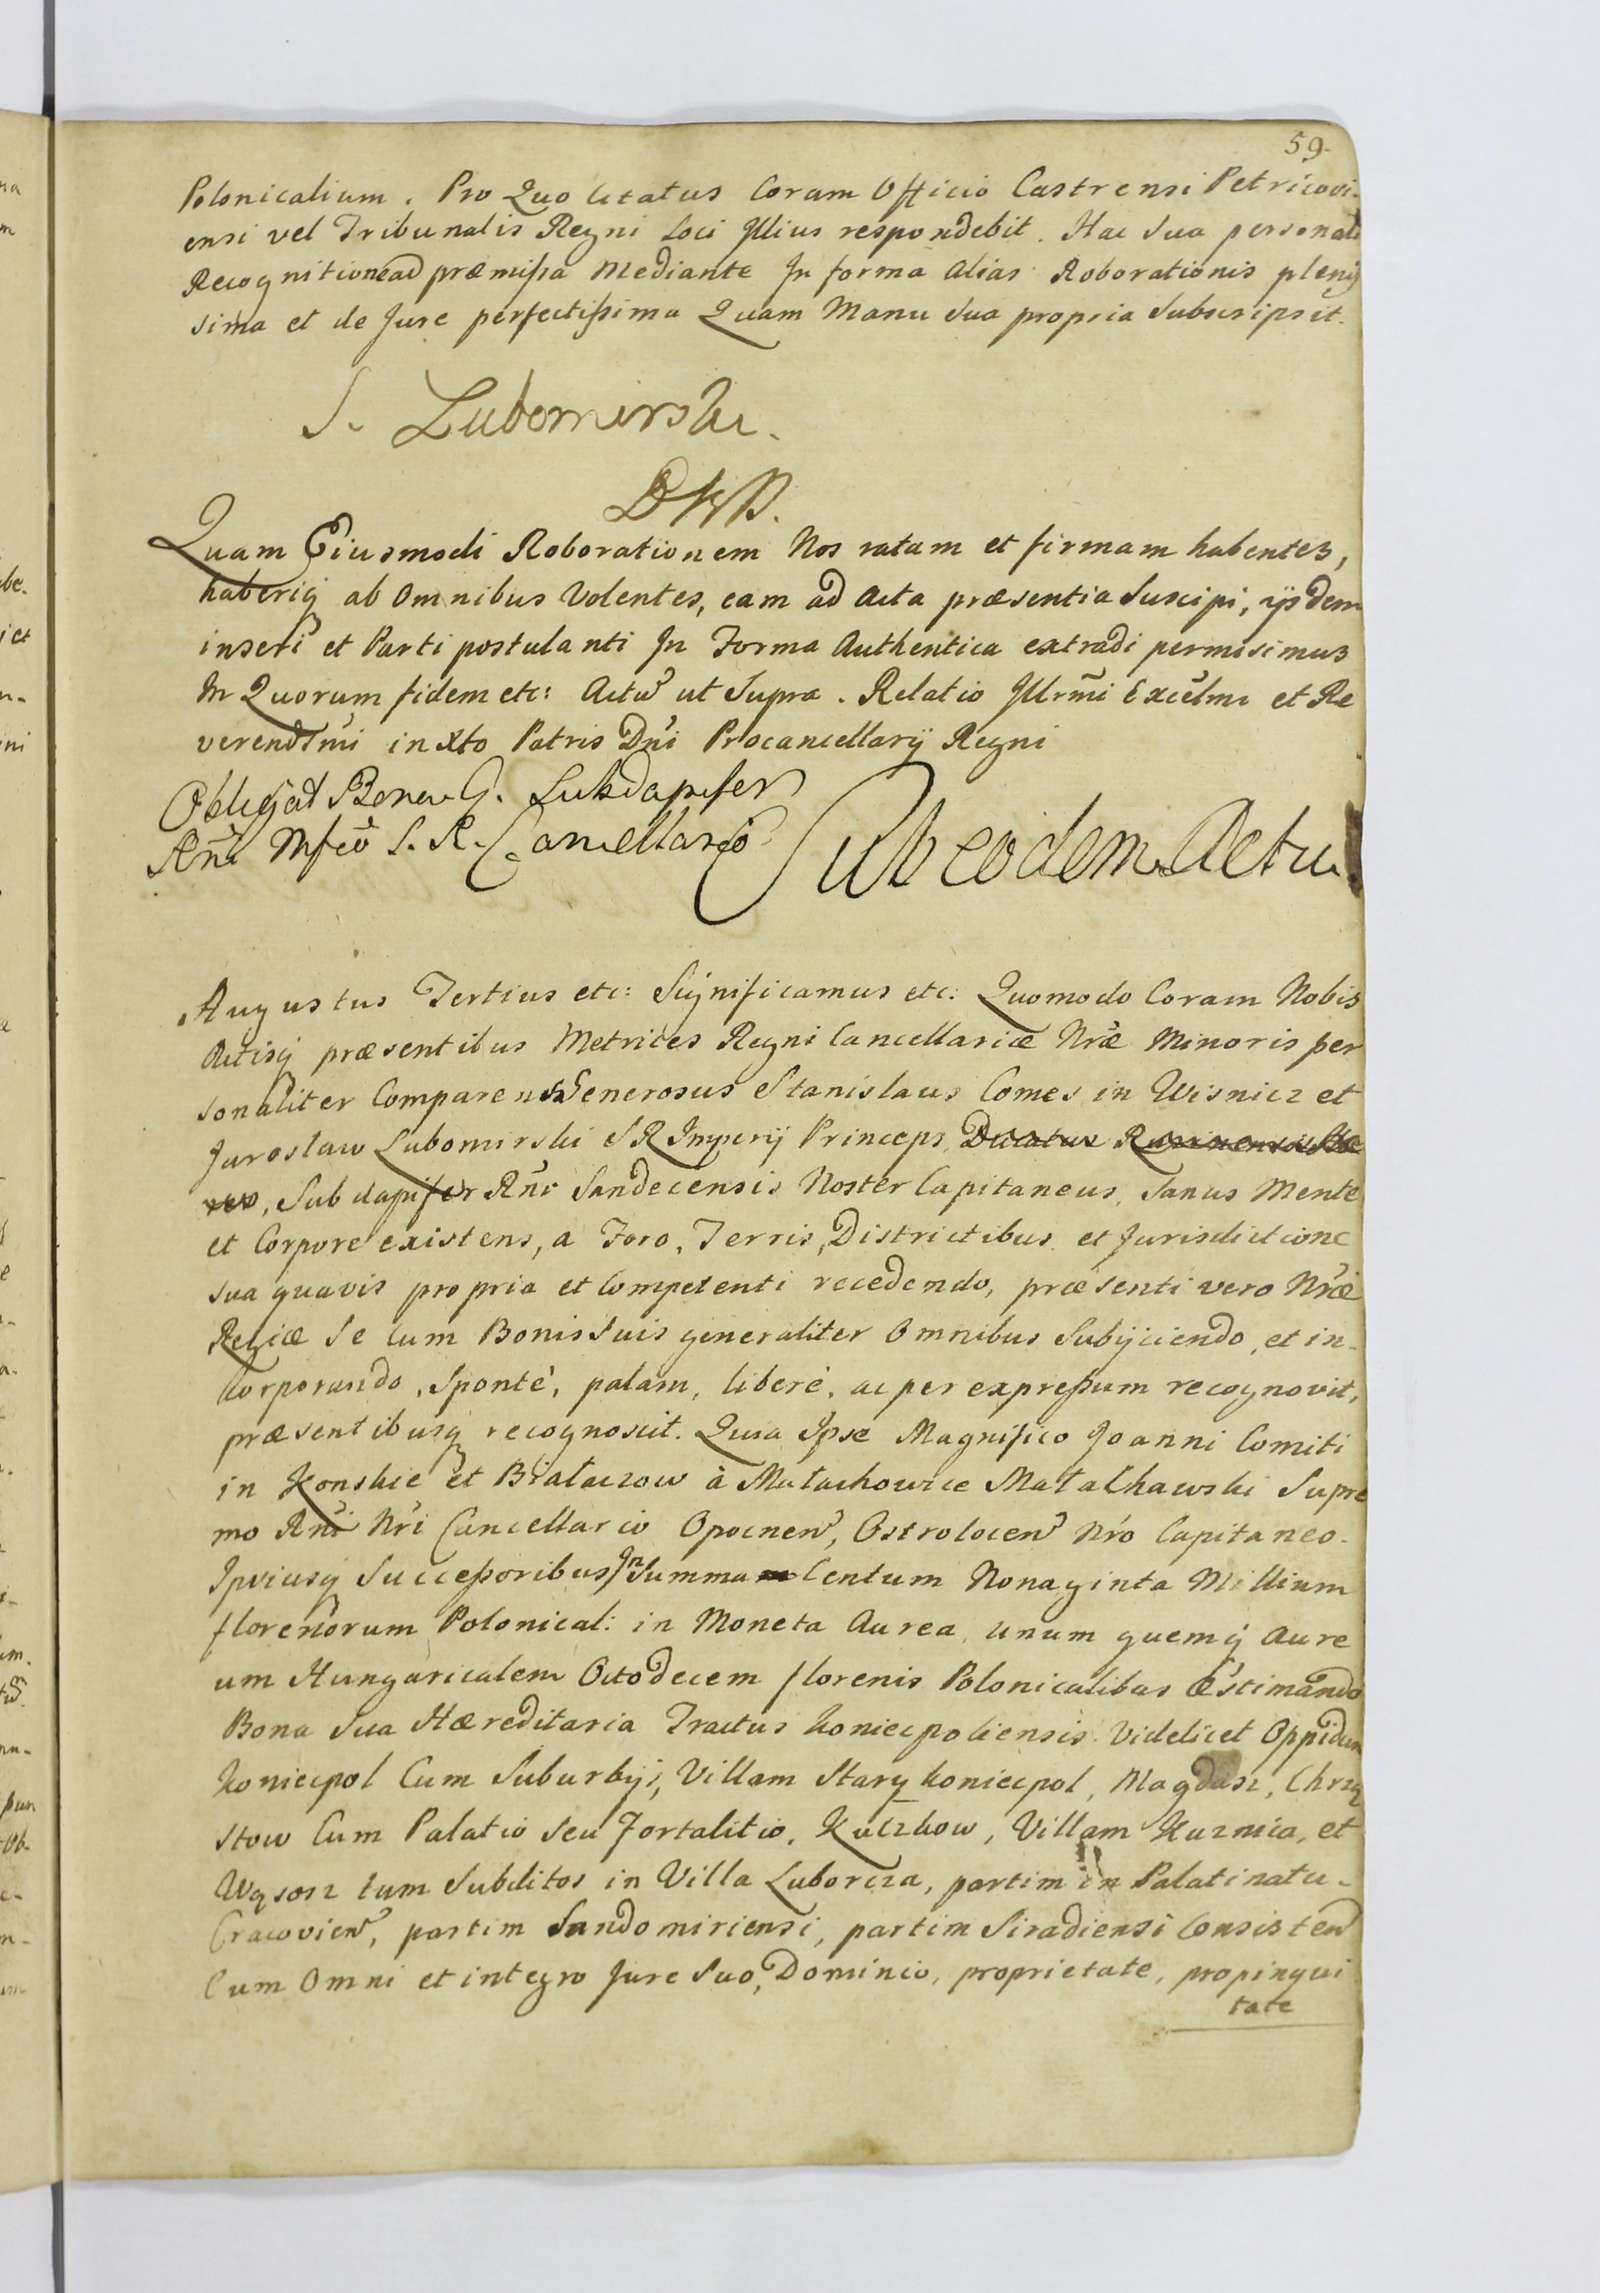 59.
Polonicalium. Pro Quo citatus Coram Officio Castrensi Petricovi-
ensi vel Tribunalis Regni Loci Illius respondebit. Hac Sua personali
Recognitione ad præmissa Mediante In forma alias Roborationis plenis
sima et de Jure perfectissima Quam Manu sua propria subscripsit.
S. Lubomirski.
Quam Eiusmodi Roborationem Nos ratam et firmam habentes,
haberiq ab Omnibus Volentes, eam ad Acta præsentia Suscipi, ijsdem
inseri et Parti postulanti In Forma Authentica extradi permisimus
In Quorum fidem etc: Actu ut Supra. Relatio Illrmi Excelmi et Re
verendsmi in Xto Patris Dni Procancellarij Regni
Obligat Bona G. Subdapifer
Rni Mfco S. R. Cancellario
Sub eodem Actu.
Augustus Tertius etc: Significamus etc: Quomodo Coram Nobis
Actisq præsentibus Metrices Regni Cancellariæ Nræ Minoris per
sonaliter Comparens Generosus Stanislaus Comes in Wisnicz et
Jaroslaw Lubomirski SR Imperij Princeps, Ducatus
, Subdapifer Rni Sandecensis Noster Capitaneus, Sanus Mente
et Corpore existens, a Foro, Terris, Districtibus et Jurisdictione
sua quavis propria et Competenti recedendo, præsenti vero Nræ
Regiæ Se cum Bonis Suis generaliter Omnibus Subijciendo, et in-
corporando, Sponté, palam, liberè, ac per expressum recognovit,
præsentibusq recognoscit. Quia Ipse Magnifico Joanni Comiti
in Konskie et Białaczow à Małachowice Małachawski Supre
mo Rni Nri Cancellario Opocnen, Ostrolocen Nro Capitaneo.
Ipsiusq Successoribus In Summa Centum Nonaginta Millium
florenorum Polonical: in Moneta Aurea, unum quemq Aure
um Hungaricalem Octodecem florenis Polonicalibus Æstimando
Bona Sua Hæreditaria Tractus Koniecpoliensis Videlicet Oppidum
Koniecpol Cum Suburbijs, Villam Stary Koniecpol, Magdasz, Chrzą
stow Cum Palatio Seu Fortalitio, Kuczkow, Villam Kuznica, et
Wąsosz tum Subditos in Villa Luborcza, partim in Palatinatu-
Cracovien, partim Sandomiriensi, partim Siradiensi Consisten
Cum Omni et integro Jure Suo, Dominio, proprietate, propinqui
tate